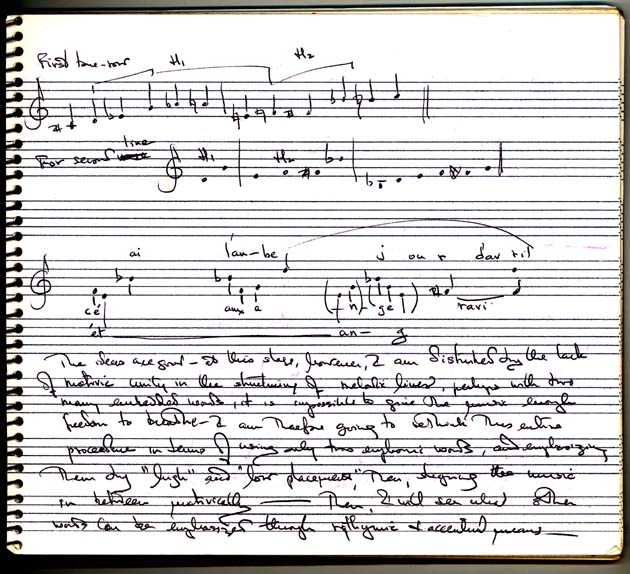 First tone-row H1 H2
For second line
H1 H2
ai l'au-be j ou r d'av ril
cé aux a ge ravi
ét an- g
The ideas are good – at this stage, however, I am disturbed by the lack
of motivic unity in the structuring of melodic lines, perhaps with two
many embedded words, it is impossible to give the music enough
freedom to breathe – I am therefore going to rethink this entire
procedure in terms of using only two euphonic words, and emphasizing
them by "high" and "low placement," then, shaping the music
in between motivically —— Then, I will see what other
words can be emphasized through rhythmic & accentual means ——